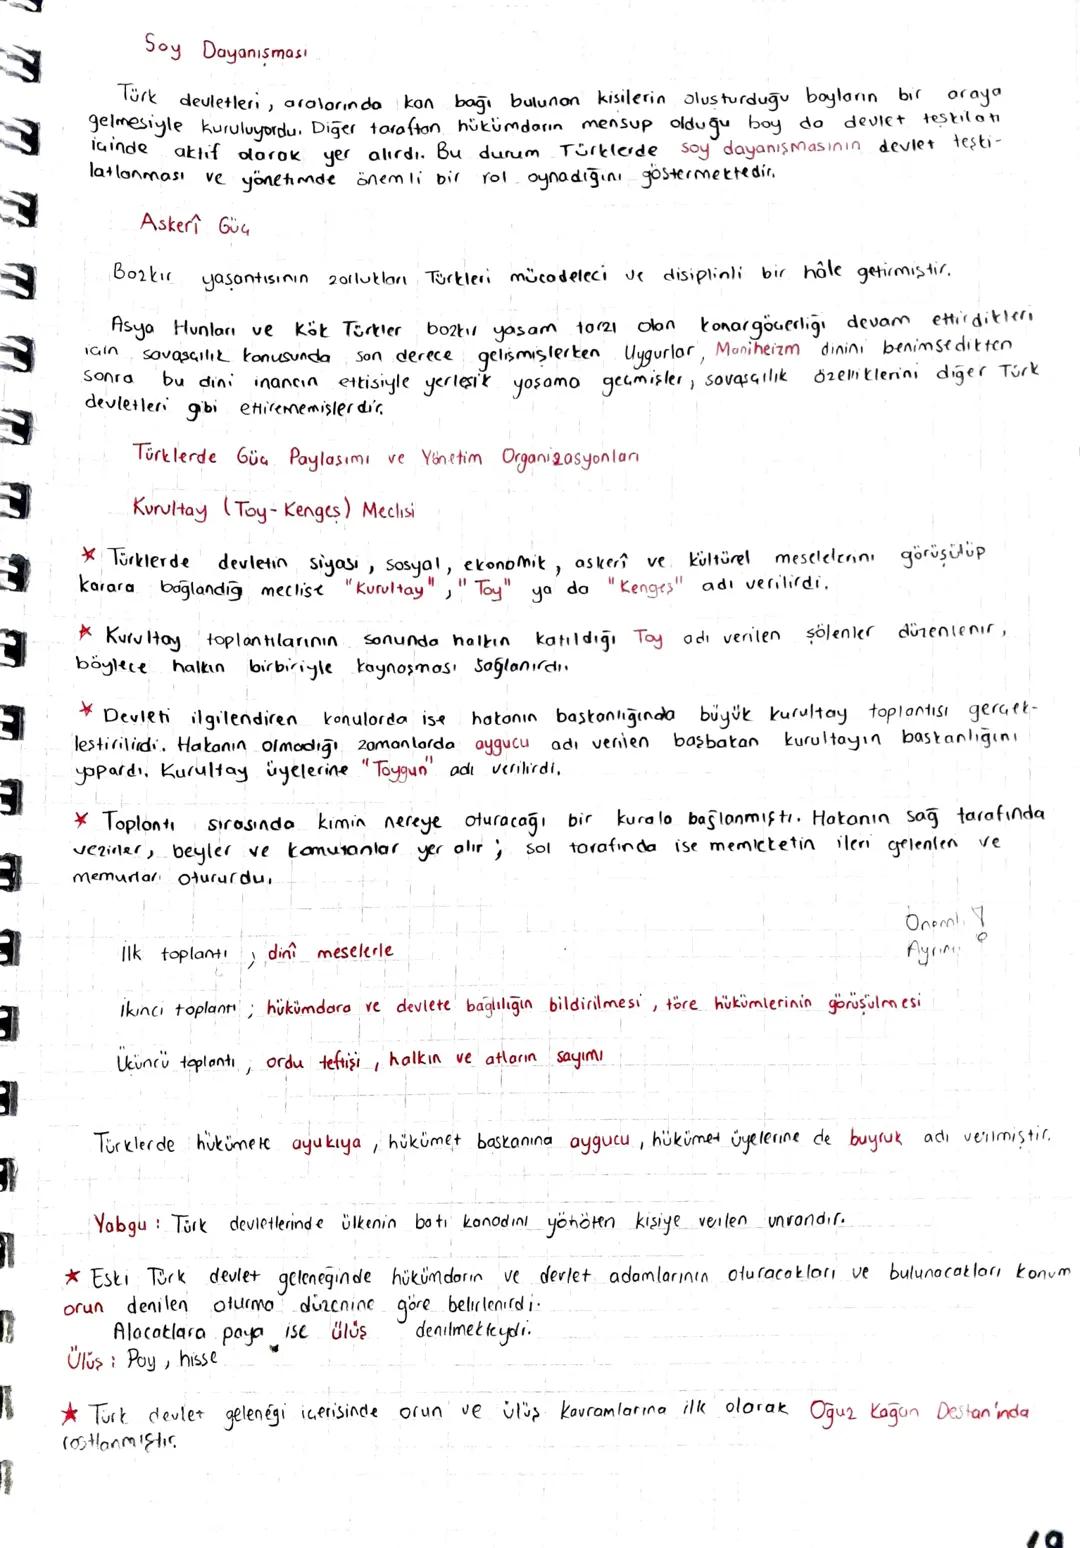 Soy Dayanışması
Türk devletleri, aralarında kan bağı bulunan kişilerin oluşturduğu boyların bir araya
gelmesiyle kuruluyordu. Diğer taraftan hükümdarın mensup olduğu boy da devlet teşkilatı
içinde aktif olarak yer alırdı. Bu durum Türklerde soy dayanışmasının devlet teşki-
latlanması ve yönetimde önemli bir rol oynadığını göstermektedir.
Askerî Güç
Bozkır yaşantısının zorlukları Türkleri mücadeleci ve disiplinli bir hâle getirmiştir.
Asya Hunları ve Kök Türkler bozkır yaşam tarzı olan konargöçerliği devam ettirdikleri
için savaşçılık konusunda son derece gelişmişlerken Uygurlar, Maniheizm dinini benimsedikten
sonra bu dini inancın etkisiyle yerleşik yaşama geçmişler, savaşçılık özelliklerini diğer Türk
devletleri gibi ettirememişlerdir.
Türklerde Güç Paylaşımı ve Yönetim Organizasyonları
Kurultay (Toy-Kengeş) Meclisi
* Türklerde devletin siyasi, sosyal, ekonomik, askerî ve kültürel meselelerini görüşülüp
karara bağlandığ meclise "Kurultay", "Toy" ya da "Kengeş" adı verilirdi.
* Kurultay toplantılarının sonunda halkın katıldığı Toy adı verilen şölenler düzenlenir,
böylece halkın birbiriyle kaynaşması sağlanırdı.
* Devleti ilgilendiren konularda ise hakanın başkanlığında büyük kurultay toplantısı gerçek-
leştirilirdi. Hakanın olmadığı zamanlarda aygucu adı verilen başbakan kurultayın başkanlığını
yapardı. Kurultay üyelerine "Toygun" adı verilirdi.
* Toplantı sırasında kimin nereye oturacağı bir kurala bağlanmıştı. Hakanın sağ tarafında
vezirler, beyler ve komutanlar yer alır; sol tarafında ise memleketin ileri gelenleri ve
memurları otururdu.
Önemli !
Ayrıntı
İlk toplantı ; dinî meselerle
İkinci toplantı ; hükümdara ve devlete bağlılığın bildirilmesi, töre hükümlerinin görüşülmesi
Üçüncü toplantı ; ordu teftişi, halkın ve atların sayımı
Türklerde hükümete ayukıya, hükümet başkanına aygucu, hükümet üyelerine de buyruk adı verilmiştir.
Yabgu : Türk devletlerinde ülkenin batı kanadını yönöten kişiye verilen unvandır.
★ Eski Türk devlet geleneğinde hükümdarın ve devlet adamlarının oturacakları ve bulunacakları konum
orun denilen oturma düzenine göre belirlenirdi.
Alacaklara paya ise ülüş denilmekteydi.
Ülüş : Pay, hisse
★ Türk devlet geleneği içerisinde orun ve ülüş kavramlarına ilk olarak Oğuz Kağan Destan'ında
rastlanmıştır.
19